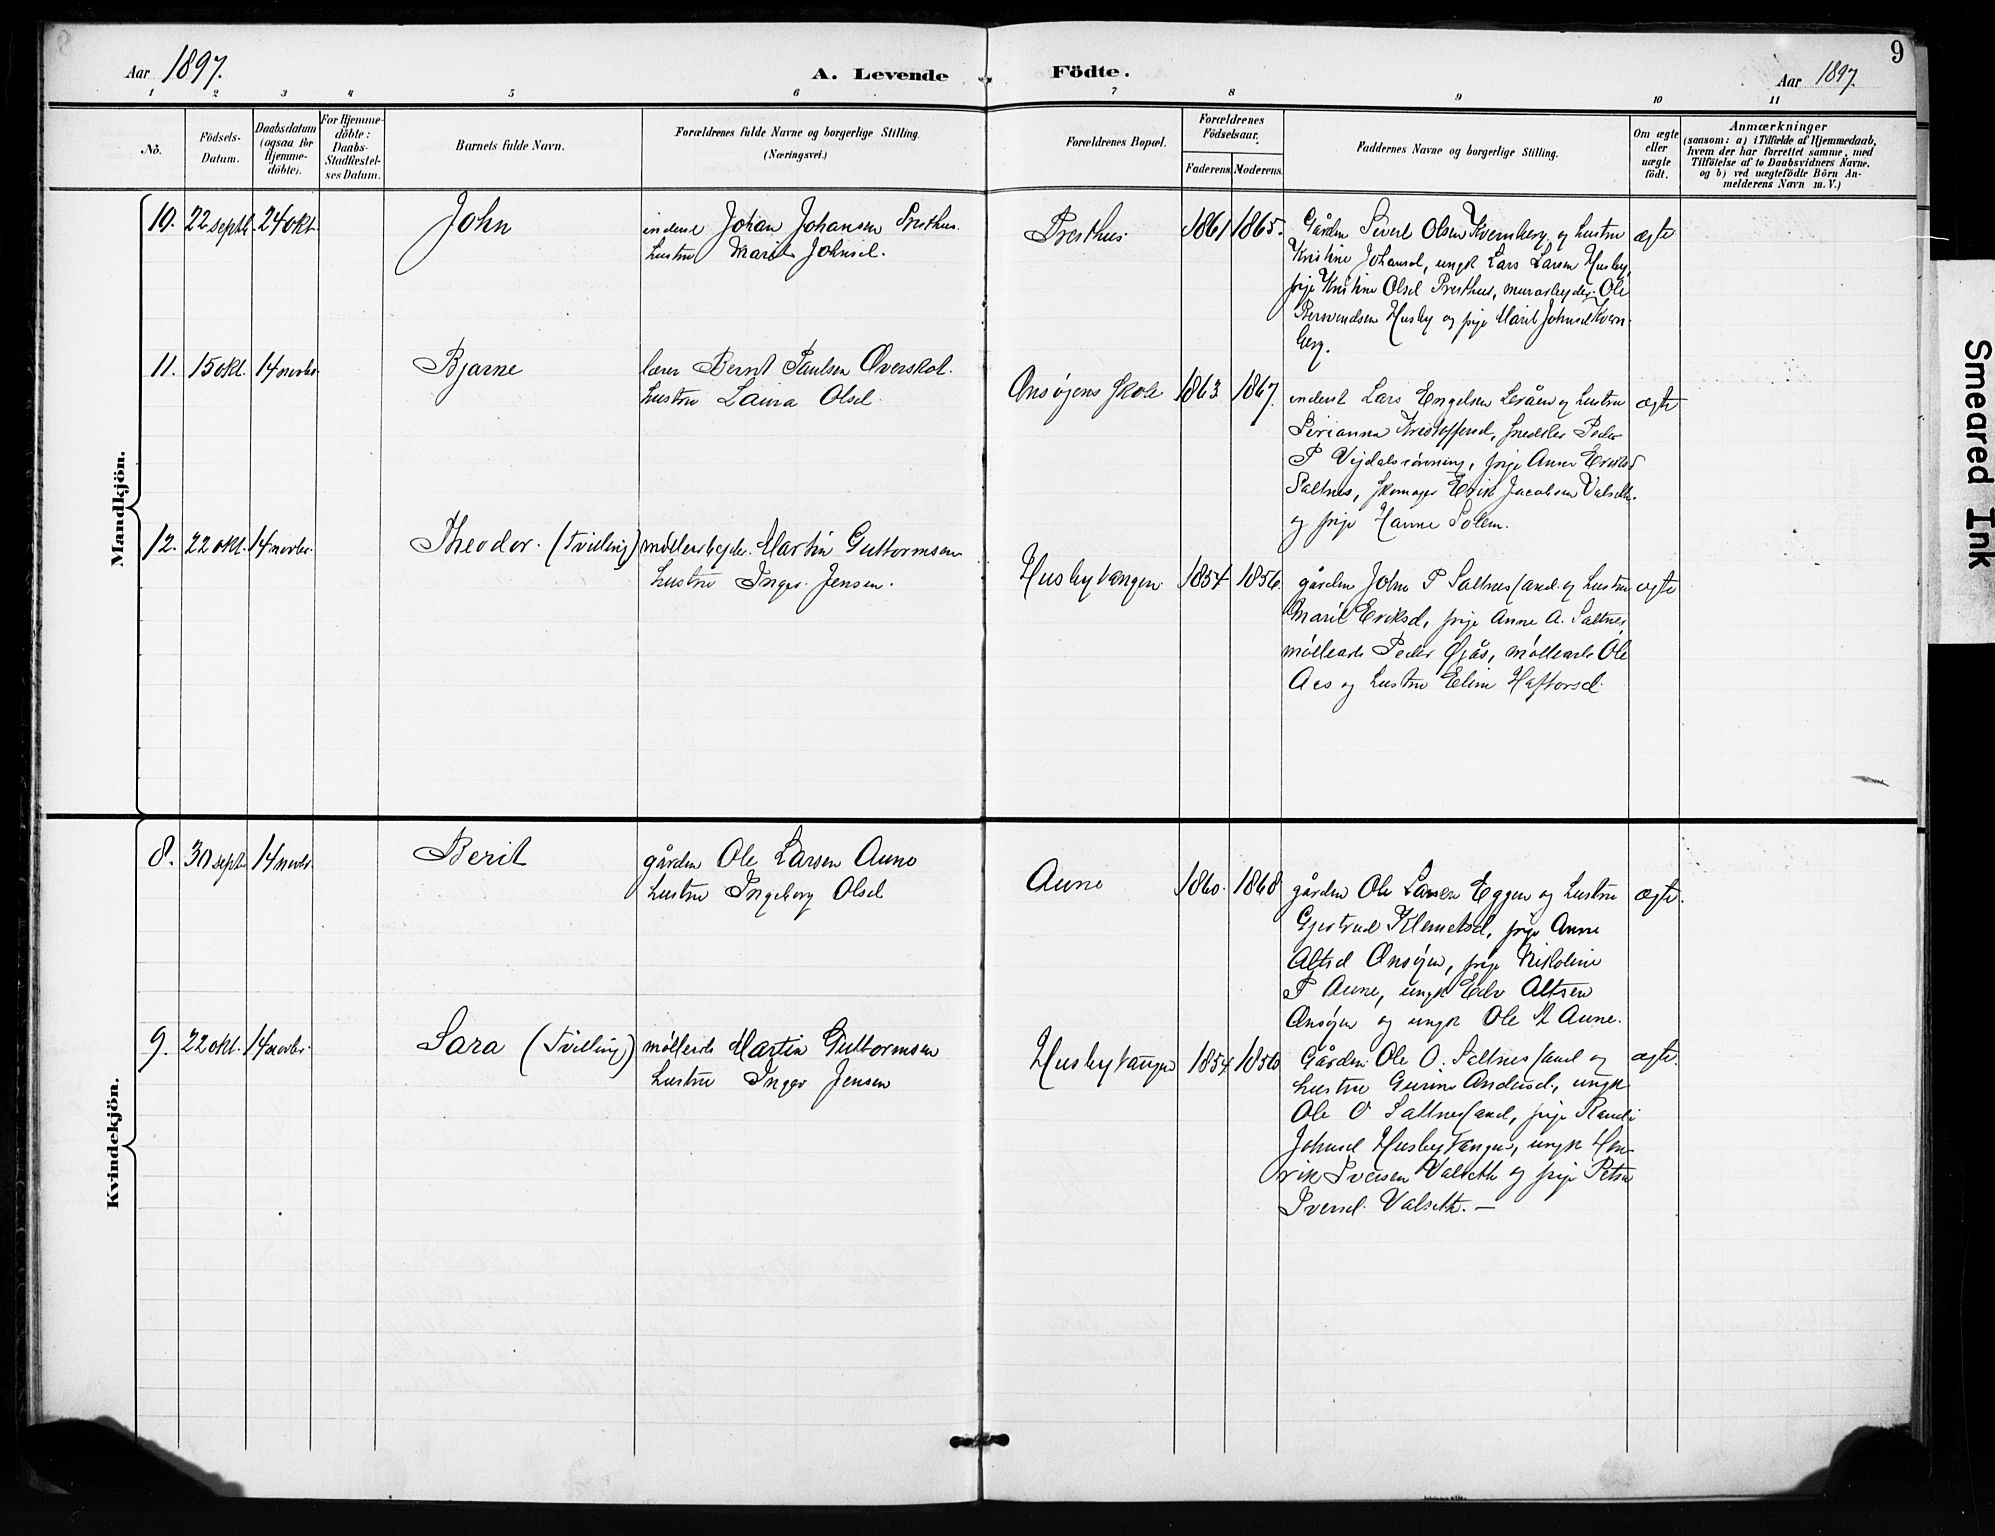 9
Aar 1897.
A. Levende Födte.
Aar 1897.
1 2 3 4 5 6 7 8 9 10 11
No.
Födsels-
Datum.
Daabsdatum
(ogsaa for
Hjemme-
döbte).
For Hjemme-
döbte:
Daabs-
Stadfæstel-
ses Datum.
Barnets fulde Navn.
Forældrenes fulde Navne og borgerlige Stilling.
(Næringsvei.)
Forældrenes Bopæl.
Forældrenes
Födselsaar.
Faderens. Moderens.
Faddernes Navne og borgerlige Stilling.
Om ægte
eller
uægte
født.
Anmærkninger
(saasom: a) i Tilfælde af Hjemmedaab,
hvem der har forrettet samme, med
Tilföielse af to Daabsvidners Navne.
og b) ved uægtefödte Börn An-
melderens Navn m. V.)
Mandkjön.
10. 22 septb. 24 okt. John
inderst Johan Johansen Presthus.
hustru Marit Johnsd.
Presthus. 1861 1865.
Gården Sivert Olsen Kvernberg og hustru
Kristine Johansd, ungk Lars Larsen Husby,
pige Kristine Olsd Presthus, murarbeyder Ole
Berwendsen Husby og pige Marit Johnsd Kvern-
berg.
ægte
11. 15 okt. 14 novbr. Bjarne
lærer Bernt Paulsen Øverskot.
hustru Laura Olsd.
Ansøjens skole 1863 1867.
inderst Lars Engelsen Leråen og hustru
Sirianna Kristoffersd, snedker Peder
P Vejdalsrønning, pige Anne Eriksd
Saltnes, skomager Erik Jacobsen Valseth.
og pige Hanne Solem.
ægte
12. 22 okt. 14 novbr. Theodor. (Tvilling)
møllearbejder. Martin Guttormsen
hustru Inger Jensen.
Husbyvangen 1854 1856.
gården John P Saltnessand. og hustru
Marit Eriksd, pige Anne A. Saltnes
møllearb Peder Øyås, møllearb Ole
Aas og hustru Eline Haftorsd.
ægte
Kvindekjön.
8. 30 septb 14 novbr. Berit
gården Ole Larsen Aune
hustru Ingeborg Olsd
Aune 1860. 1868
gården Ole Larsen Eggen og hustru
Gjertrud Klemetsd, pige Anne
Altsd Ansøjen, pige Nikoline
P Aune, ungk Edv Altsen
Ansøjen og ungk Ole M Aune.
ægte.
9. 22 okt. 14 novbr. Sara (Tvilling)
møllearb Martin Guttormsen
hustru Inger Jensen
Husbyvangen 1854 1856
Gården. Ole O. Saltnessand og
hustru Gurine Andersd, ungk
Ole O Saltnessand, pige Randi
Johnsd Husbyvangen, ungk Hen-
rik Iversen Valseth og pige Petra
Iversd. Valseth. —
ægte.
Smeared Ink